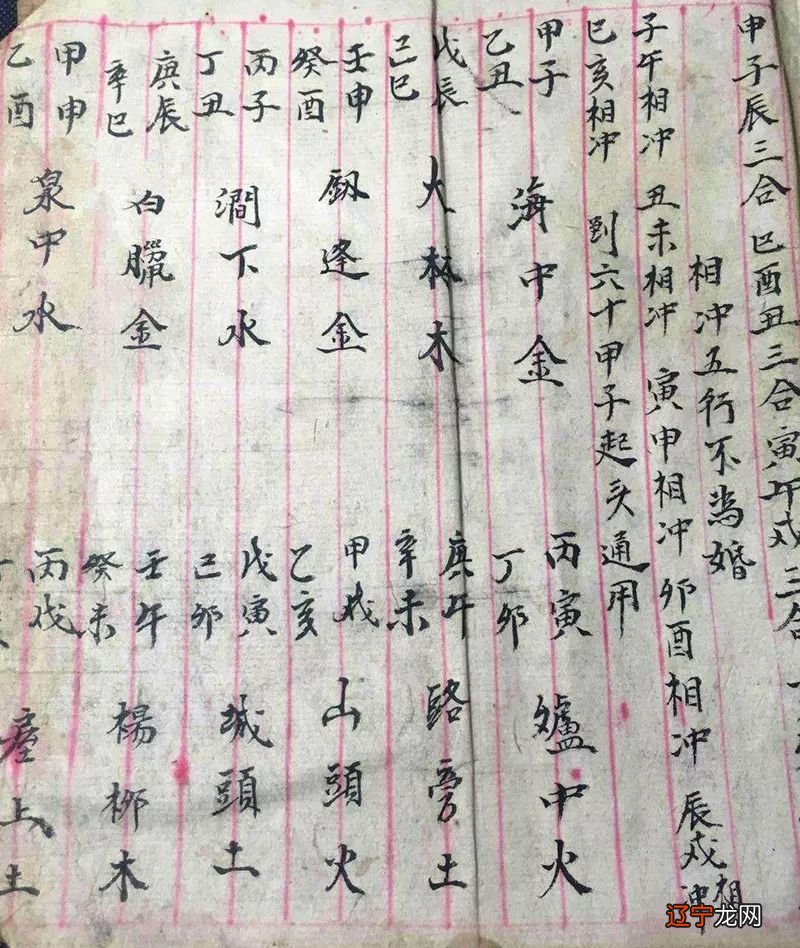 申子辰三合 巳酉丑三合寅午戌三合
相冲五行不为婚
子午相冲 丑未相冲 寅申相冲 卯酉相冲 辰戌相冲
巳亥相冲 到六十甲子起头通用
甲子 乙丑 海中金 丙寅 丁卯 爐中火
戊辰 己巳 大林木 庚午 辛未 路旁土
壬申 癸酉 釼逢金 甲戌 乙亥 山頭火
丙子 丁丑 澗下水 戊寅 己卯 城頭土
庚辰 辛巳 白臘金 壬午 癸未 楊柳木
甲申 乙酉 泉中水 丙戌 上土
辽宁龙网